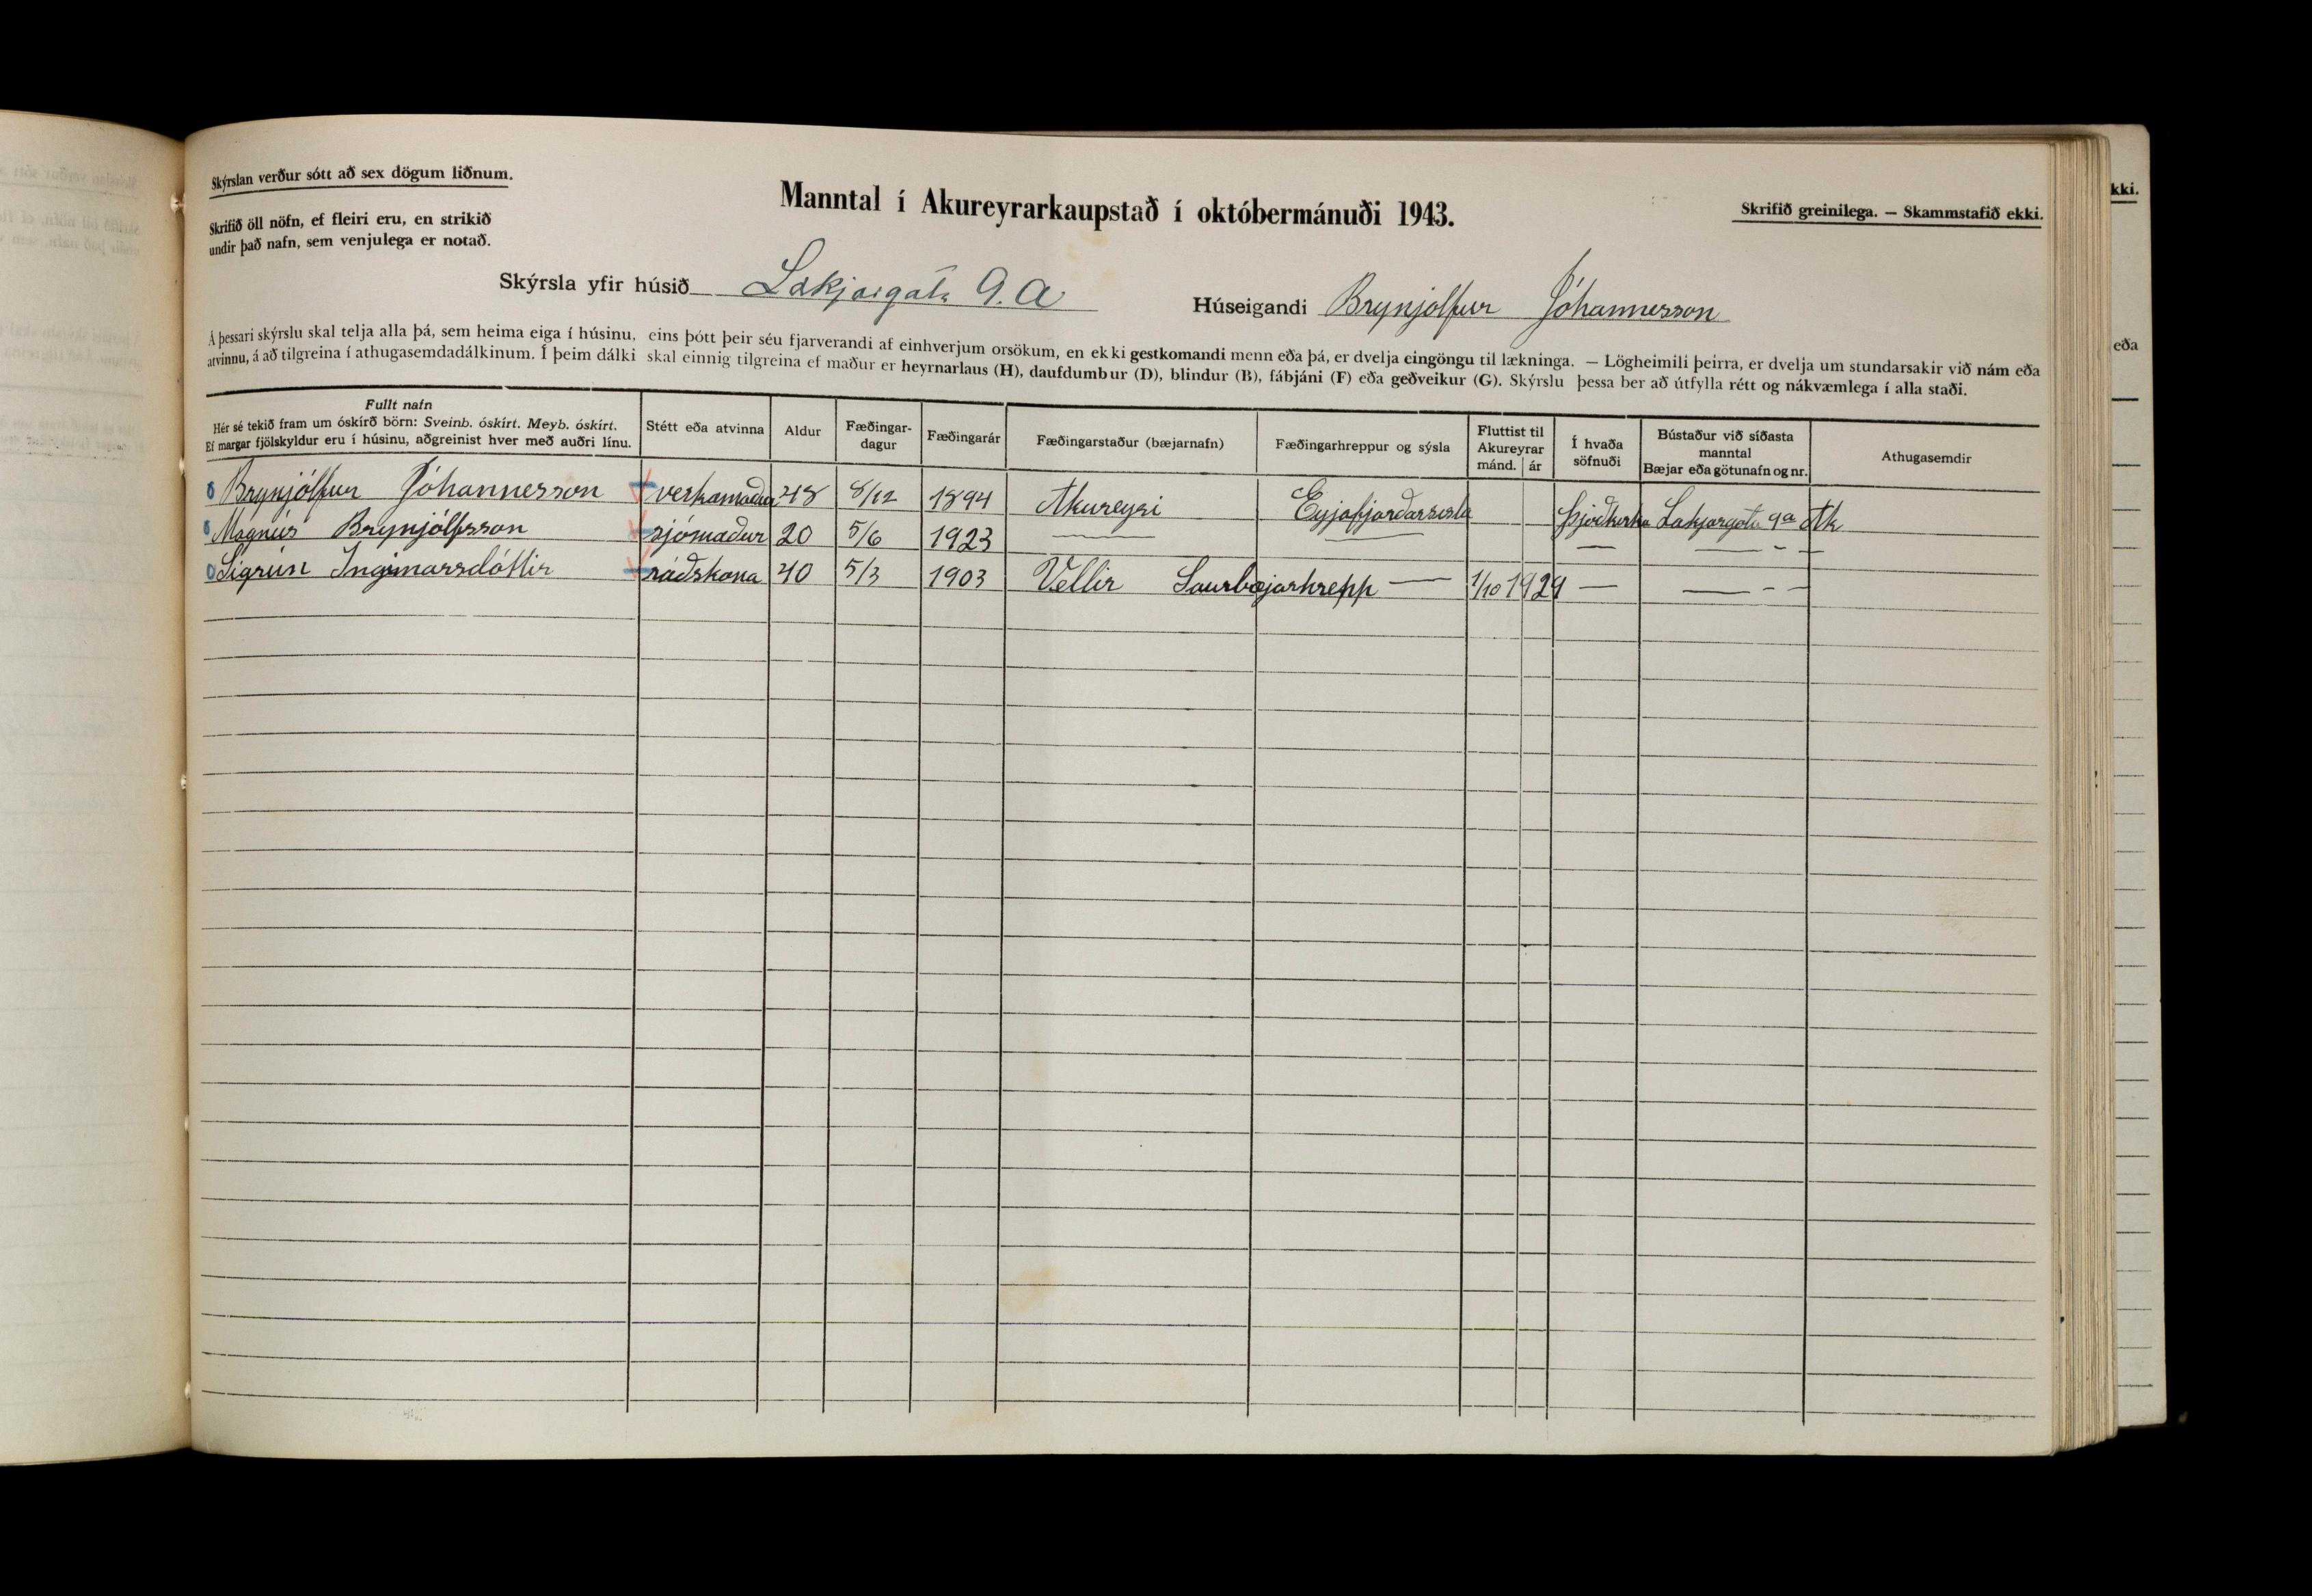 Skýrslan verður sótt að sex dögum liðnum.
Skrifið öll nöfn, ef fleiri eru, en strikið
undir það nafn, sem venjulega er notað.
Manntal í Akureyrarkaupstað í októbermánuði 1943.
Skrifið greinilega. — Skammstafið ekki.
Skýrsla yfir húsið Lækjargata 9. A
Húseigandi Brynjólfur Jóhannesson
Á þessari skýrslu skal telja alla þá, sem heima eiga í húsinu, eins þótt þeir séu fjarverandi af einhverjum orsökum, en ekki gestkomandi menn eða þá, er dvelja eingöngu til lækninga. — Lögheimili þeirra, er dvelja um stundarsakir við nám eða
atvinnu, á að tilgreina í athugasemdadálkinum. Í þeim dálki skal einnig tilgreina ef maður er heyrnarlaus (H), daufdumbur (D), blindur (B), fábjáni (F) eða geðveikur (G). Skýrslu þessa ber að útfylla rétt og nákvæmlega í alla staði.
Fullt nafn
Hér sé tekið fram um óskírð börn: Sveinb. óskírt. Meyb. óskírt.
Ef margar fjölskyldur eru í húsinu, aðgreinist hver með auðri línu.
Stétt eða atvinna
Aldur
Fæðingar-
dagur
Fæðingarár
Fæðingarstaður (bæjarnafn)
Fæðingarhreppur og sýsla
Fluttist til
Akureyrar
mánd. | ár
Í hvaða
söfnuði
Bústaður við síðasta
manntal
Bæjar eða götunafn og nr.
Athugasemdir
Brynjólfur Jóhannesson verkamaður 48 8/12 1894 Akureyri Eyjafjarðarsýsla Þjóðkirkja Lækjargata 9a Ak
Magnús Brynjólfsson sjómaður 20 5/6 1923 — — — — - —
Sigrún Ingimarsdóttir ráðskona 40 5/3 1903 Vellir Saurbæjarhrepp — 1/10 1929 — — - —
kki.
eða